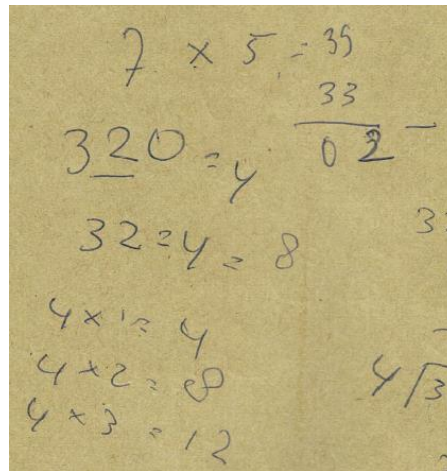 7 × 5 = 35
33
02 -
320 = 4
32 = 4 = 8
3
4 × 1 = 4
4 × 2 = 8
4 × 3 = 12
4√3